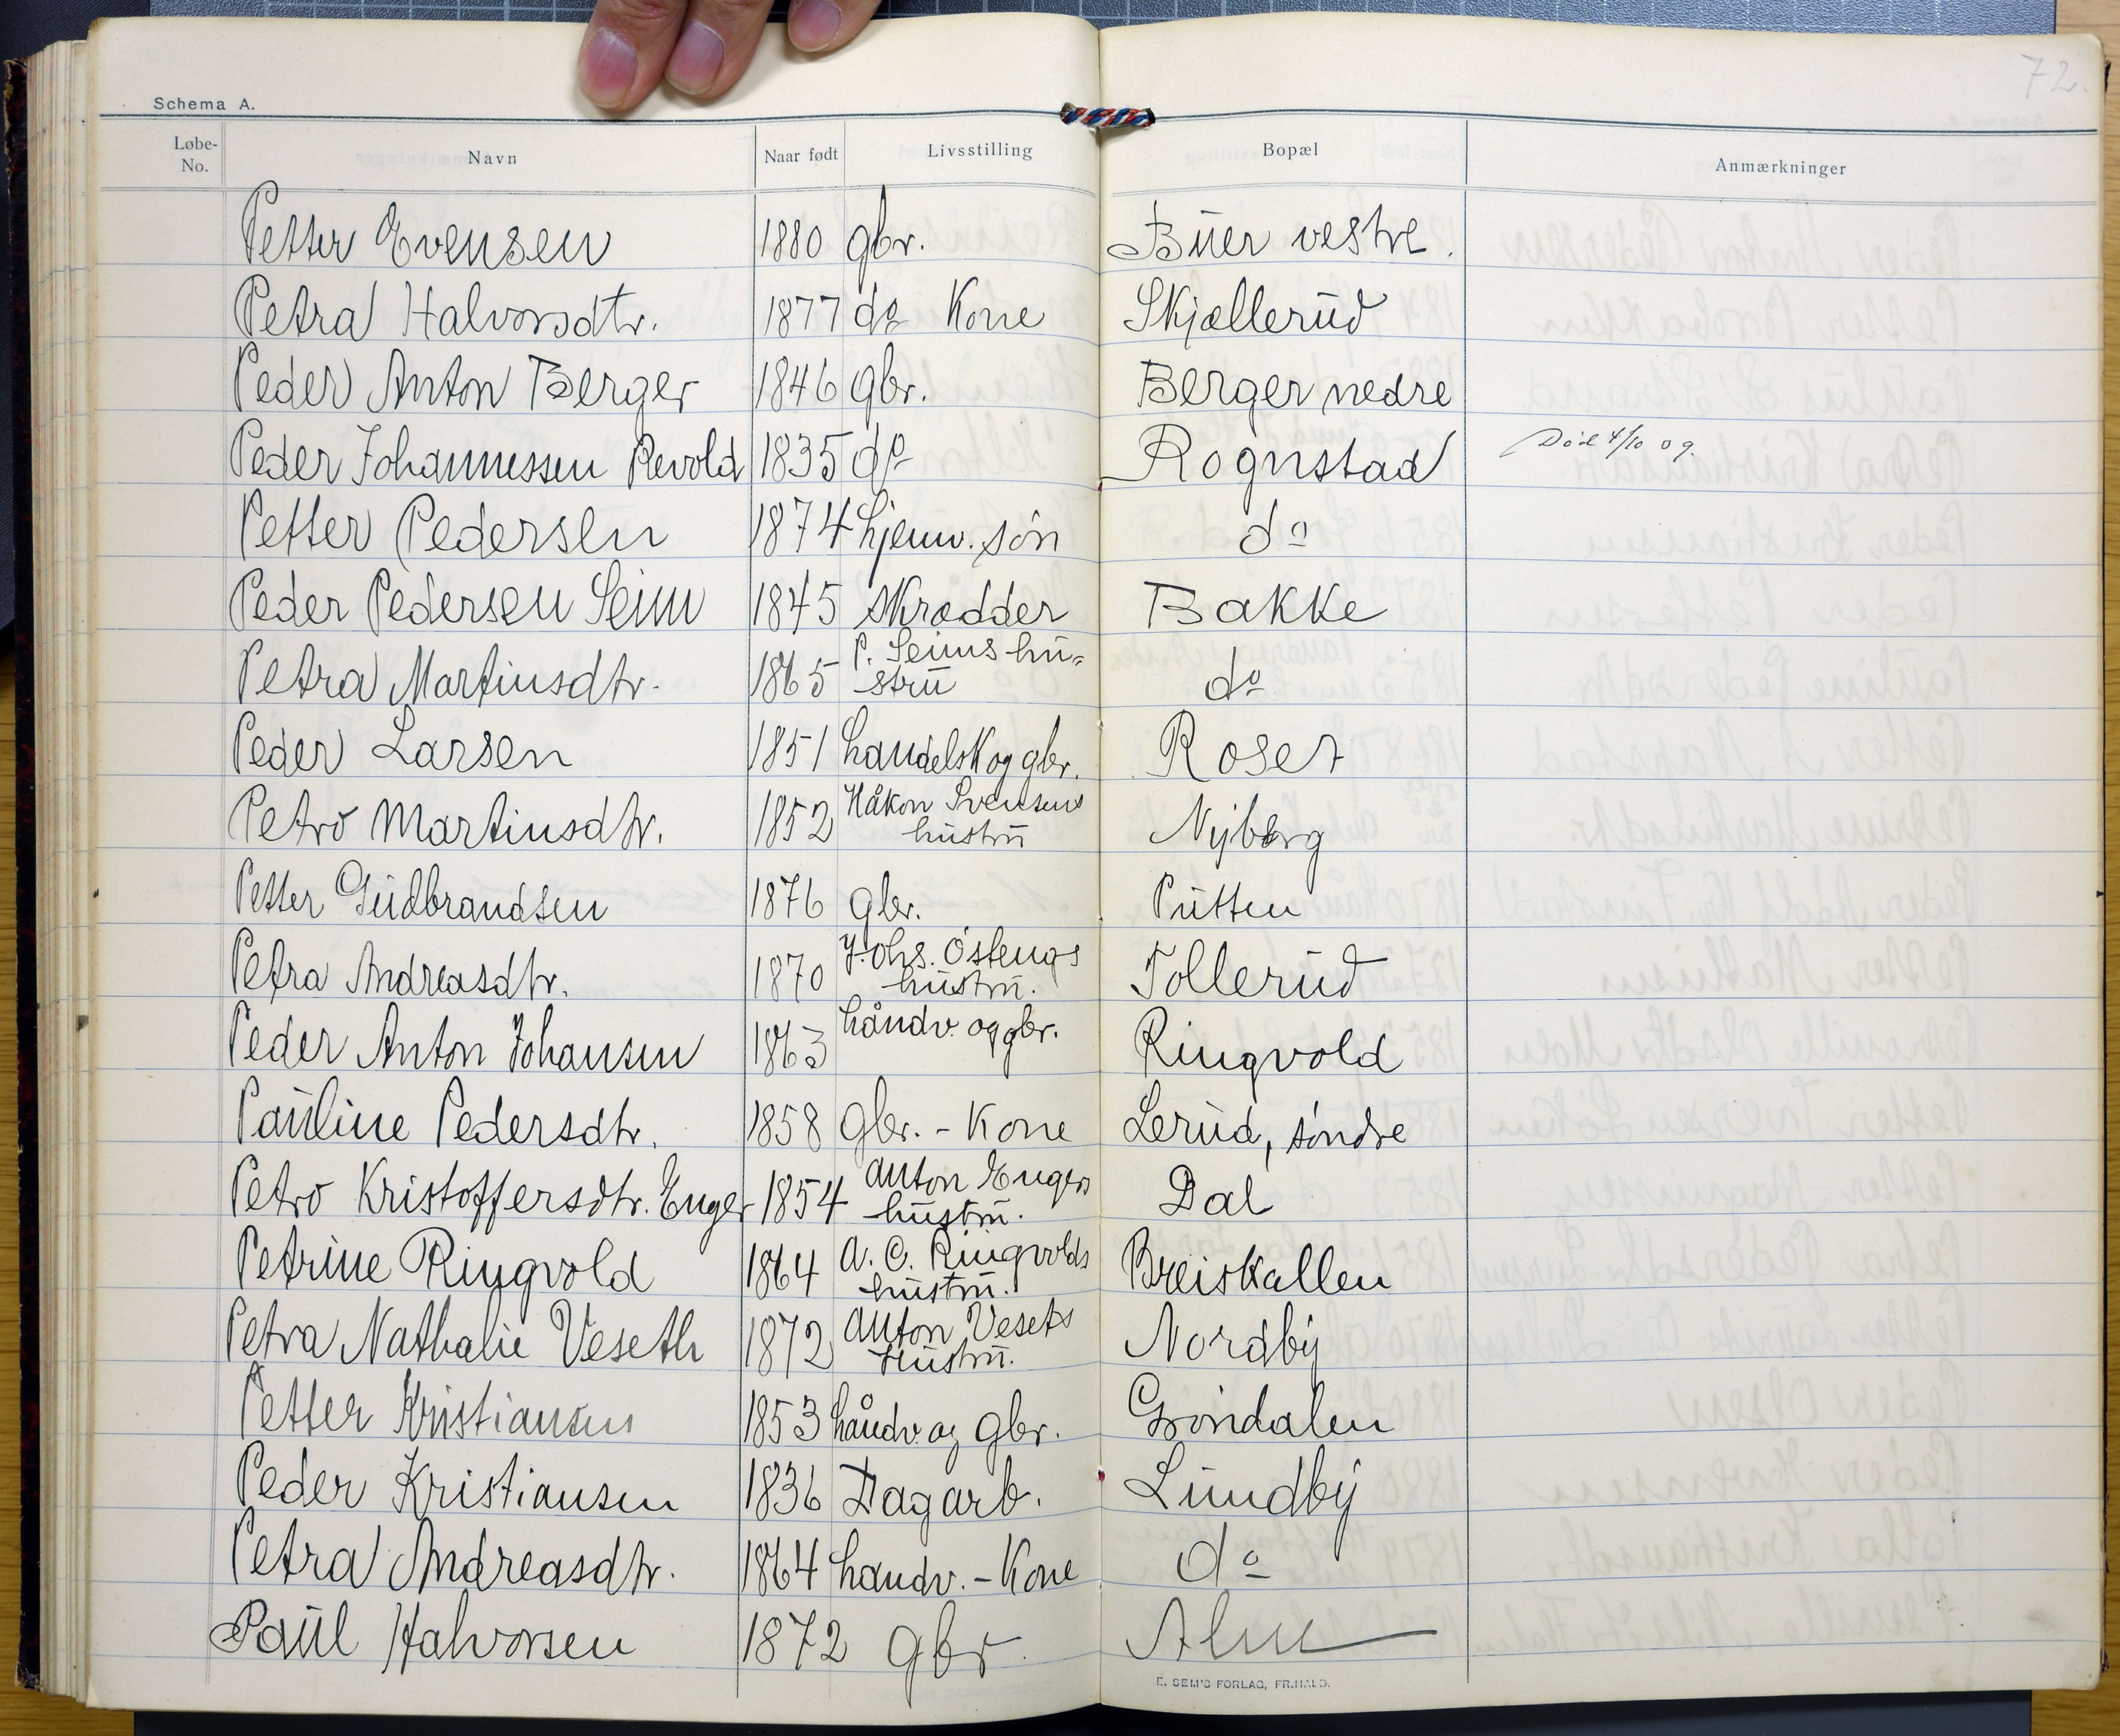 72.
Schema A.
Løbe-No. Navn Naar født Livsstilling Bopæl Anmærkninger
Petter Evensen 1880 gbr. Büer vestre.
Petra Halvorsdtr. 1877 do Kone Skjællerüd
Peder Anton Berger 1846 gbr. Berger nedre
Peder Johannessen Revold 1835 do Rognstad Död 4/10 09.
Petter Pedersen 1874 hjemv. sön do
Peder Pedersen Seim 1845 skrædder Bakke
Petra Martinsdtr. 1865 P. Seims hü=strü do
Peder Larsen 1851 handelsk og gbr. Roset
Petro Martinsdtr. 1852 Håkon Svensens hüstrü Nyberg
Petter Güdbrandsen 1876 gbr. Pütten
Petra Andreasdtr. 1870 Johs. Östengs hüstrü. Tollerüd
Peder Anton Johansen 1863 håndv. og gbr. Ringvold
Paüline Pedersdtr. 1858 Gbr. - Kone Lerüd, söndre
Petro Kristoffersdtr. Enger 1854 Anton Engers hüstrü. Dal
Petrine Ringvold 1864 A. C. Ringvolds hüstrü. Breiskallen
Petra Nathalie Veseth 1872 Anton Vesets Hüstrü. Nordby
Petter Kristiansen 1853 håndv. og gbr. Gröndalen
Peder Kristiansen 1836 Dagarb. Lündby
Petra Andreasdtr. 1864 handv. - Kone do
Paül Halvorsen 1872 gbr Alm
E. SEM'S FORLAG, FR.HALD.